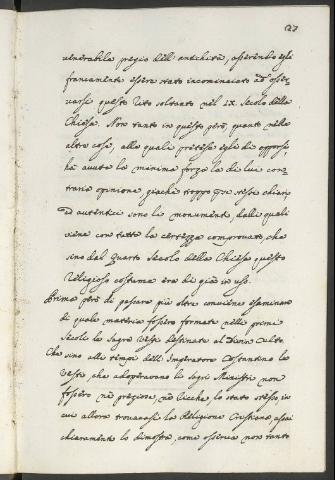 127
venerabile pregio dell' antichità, asserendo egli
francamente essere stato incominciato ad osser-
varsi questo Rito soltanto nel IX. Secolo della
Chiesa. Non tanto in questo però, quanto nelle
altre cose, alle quali pretese egli di opporsi,
ha avuto la minima forza la di lui con-
traria opinione, giacchè troppo per se stesse chiari
ed autentici sono li monumenti, dalli quali
viene con tutta la certezza comprovato, che
sino dal Quarto Secolo della Chiesa questo
Religioso costume era di già in uso.
Prima però di passare più oltre conviene esaminare
di quale materia fossero formate nelli primi
Secoli le Sagre Vesti destinate al Divin Culto.
Che sino alli tempi dell' Imperatore Costantino le
Vesti, che adoperavano li Sagri Ministri non
fossero nè preziose, nè ricche, lo stato stesso, in
cui allora trovavasi la Religione Cristiana, assai
chiaramente lo dimostra, come osserva non tanto